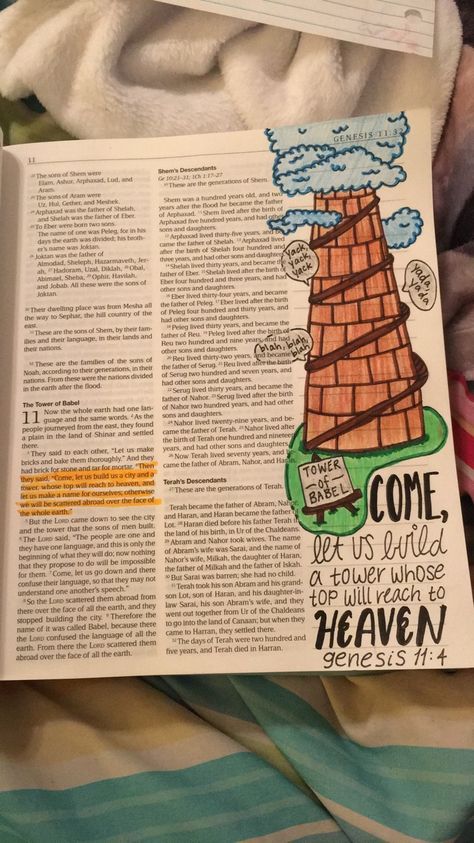 11
GENESIS 11:32
22 The sons of Shem were
Elam, Ashur, Arphaxad, Lud, and
Aram.
23 The sons of Aram were
Uz, Hul, Gether, and Meshek.
24 Arphaxad was the father of Shelah,
and Shelah was the father of Eber.
25 To Eber were born two sons.
The name of one was Peleg, for in his
days the earth was divided; his broth-
er's name was Joktan.
26 Joktan was the father of
Almodad, Sheleph, Hazarmaveth, Jer-
ah, 27 Hadoram, Uzal, Diklah, 28 Obal,
Abimael, Sheba, 29 Ophir, Havilah,
and Jobab. All these were the sons of
Joktan.
30 Their dwelling place was from Mesha all
the way to Sephar, the hill country of the
east.
31 These are the sons of Shem, by their fam-
ilies and their language, in their lands and
their nations.
32 These are the families of the sons of
Noah, according to their generations, in their
nations. From these were the nations divided
in the earth after the flood.
The Tower of Babel
11 Now the whole earth had one lan-
guage and the same words. 2 As the
people journeyed from the east, they found
a plain in the land of Shinar and settled
there.
3 They said to each other, "Let us make
bricks and bake them thoroughly." And they
had brick for stone and tar for mortar. 4 Then
they said, "Come, let us build us a city and a
tower, whose top will reach to heaven, and
let us make a name for ourselves; otherwise
we will be scattered abroad over the face of
the whole earth."
5 But the LORD came down to see the city
and the tower that the sons of men built.
6 The LORD said, "The people are one and
they have one language, and this is only the
beginning of what they will do; now nothing
that they propose to do will be impossible
for them. 7 Come, let us go down and there
confuse their language, so that they may not
understand one another's speech."
8 So the LORD scattered them abroad from
there over the face of all the earth, and they
stopped building the city. 9 Therefore the
name of it was called Babel, because there
the LORD confused the language of all the
earth. From there the LORD scattered them
abroad over the face of all the earth.
Shem's Descendants
Ge 10:21–31; 1Ch 1:17–27
10 These are the generations of Shem.
Shem was a hundred years old, and two
years after the flood he became the father
of Arphaxad. 11 Shem lived after the birth of
Arphaxad five hundred years, and had other
sons and daughters.
12 Arphaxad lived thirty-five years, and be-
came the father of Shelah. 13 Arphaxad lived
after the birth of Shelah four hundred and
three years, and had other sons and daughters.
14 Shelah lived thirty years, and became the
father of Eber. 15 Shelah lived after the birth of
Eber four hundred and three years, and had
other sons and daughters.
16 Eber lived thirty-four years, and became
the father of Peleg. 17 Eber lived after the birth
of Peleg four hundred and thirty years, and
had other sons and daughters.
18 Peleg lived thirty years, and became the
father of Reu. 19 Peleg lived after the birth of
Reu two hundred and nine years, and had
other sons and daughters.
20 Reu lived thirty-two years, and became
the father of Serug. 21 Reu lived after the birth
of Serug two hundred and seven years, and
had other sons and daughters.
22 Serug lived thirty years, and became the
father of Nahor. 23 Serug lived after the birth
of Nahor two hundred years, and had other
sons and daughters.
24 Nahor lived twenty-nine years, and be-
came the father of Terah. 25 Nahor lived after
the birth of Terah one hundred and nineteen
years, and had other sons and daughters.
26 Now Terah lived seventy years, and
became the father of Abram, Nahor, and Haran.
Terah's Descendants
27 These are the generations of Terah.
Terah became the father of Abram, Nahor,
and Haran, and Haran became the father of
Lot. 28 Haran died before his father Terah in
the land of his birth, in Ur of the Chaldeans.
29 Abram and Nahor took wives. The name
of Abram's wife was Sarai, and the name of
Nahor's wife, Milkah, the daughter of Haran,
the father of Milkah and the father of Iskah.
30 But Sarai was barren; she had no child.
31 Terah took his son Abram and his grand-
son Lot, son of Haran, and his daughter-in-
law Sarai, his son Abram's wife, and they
went out together from Ur of the Chaldeans
to go into the land of Canaan; but when they
came to Harran, they settled there.
32 The days of Terah were two hundred and
five years, and Terah died in Harran.
Yack,
Yack,
Yack
Yada,
Yada
blah, blah,
blah
TOWER
of
BABEL
COME,
let us build
a tower whose
top will reach to
HEAVEN
genesis 11:4